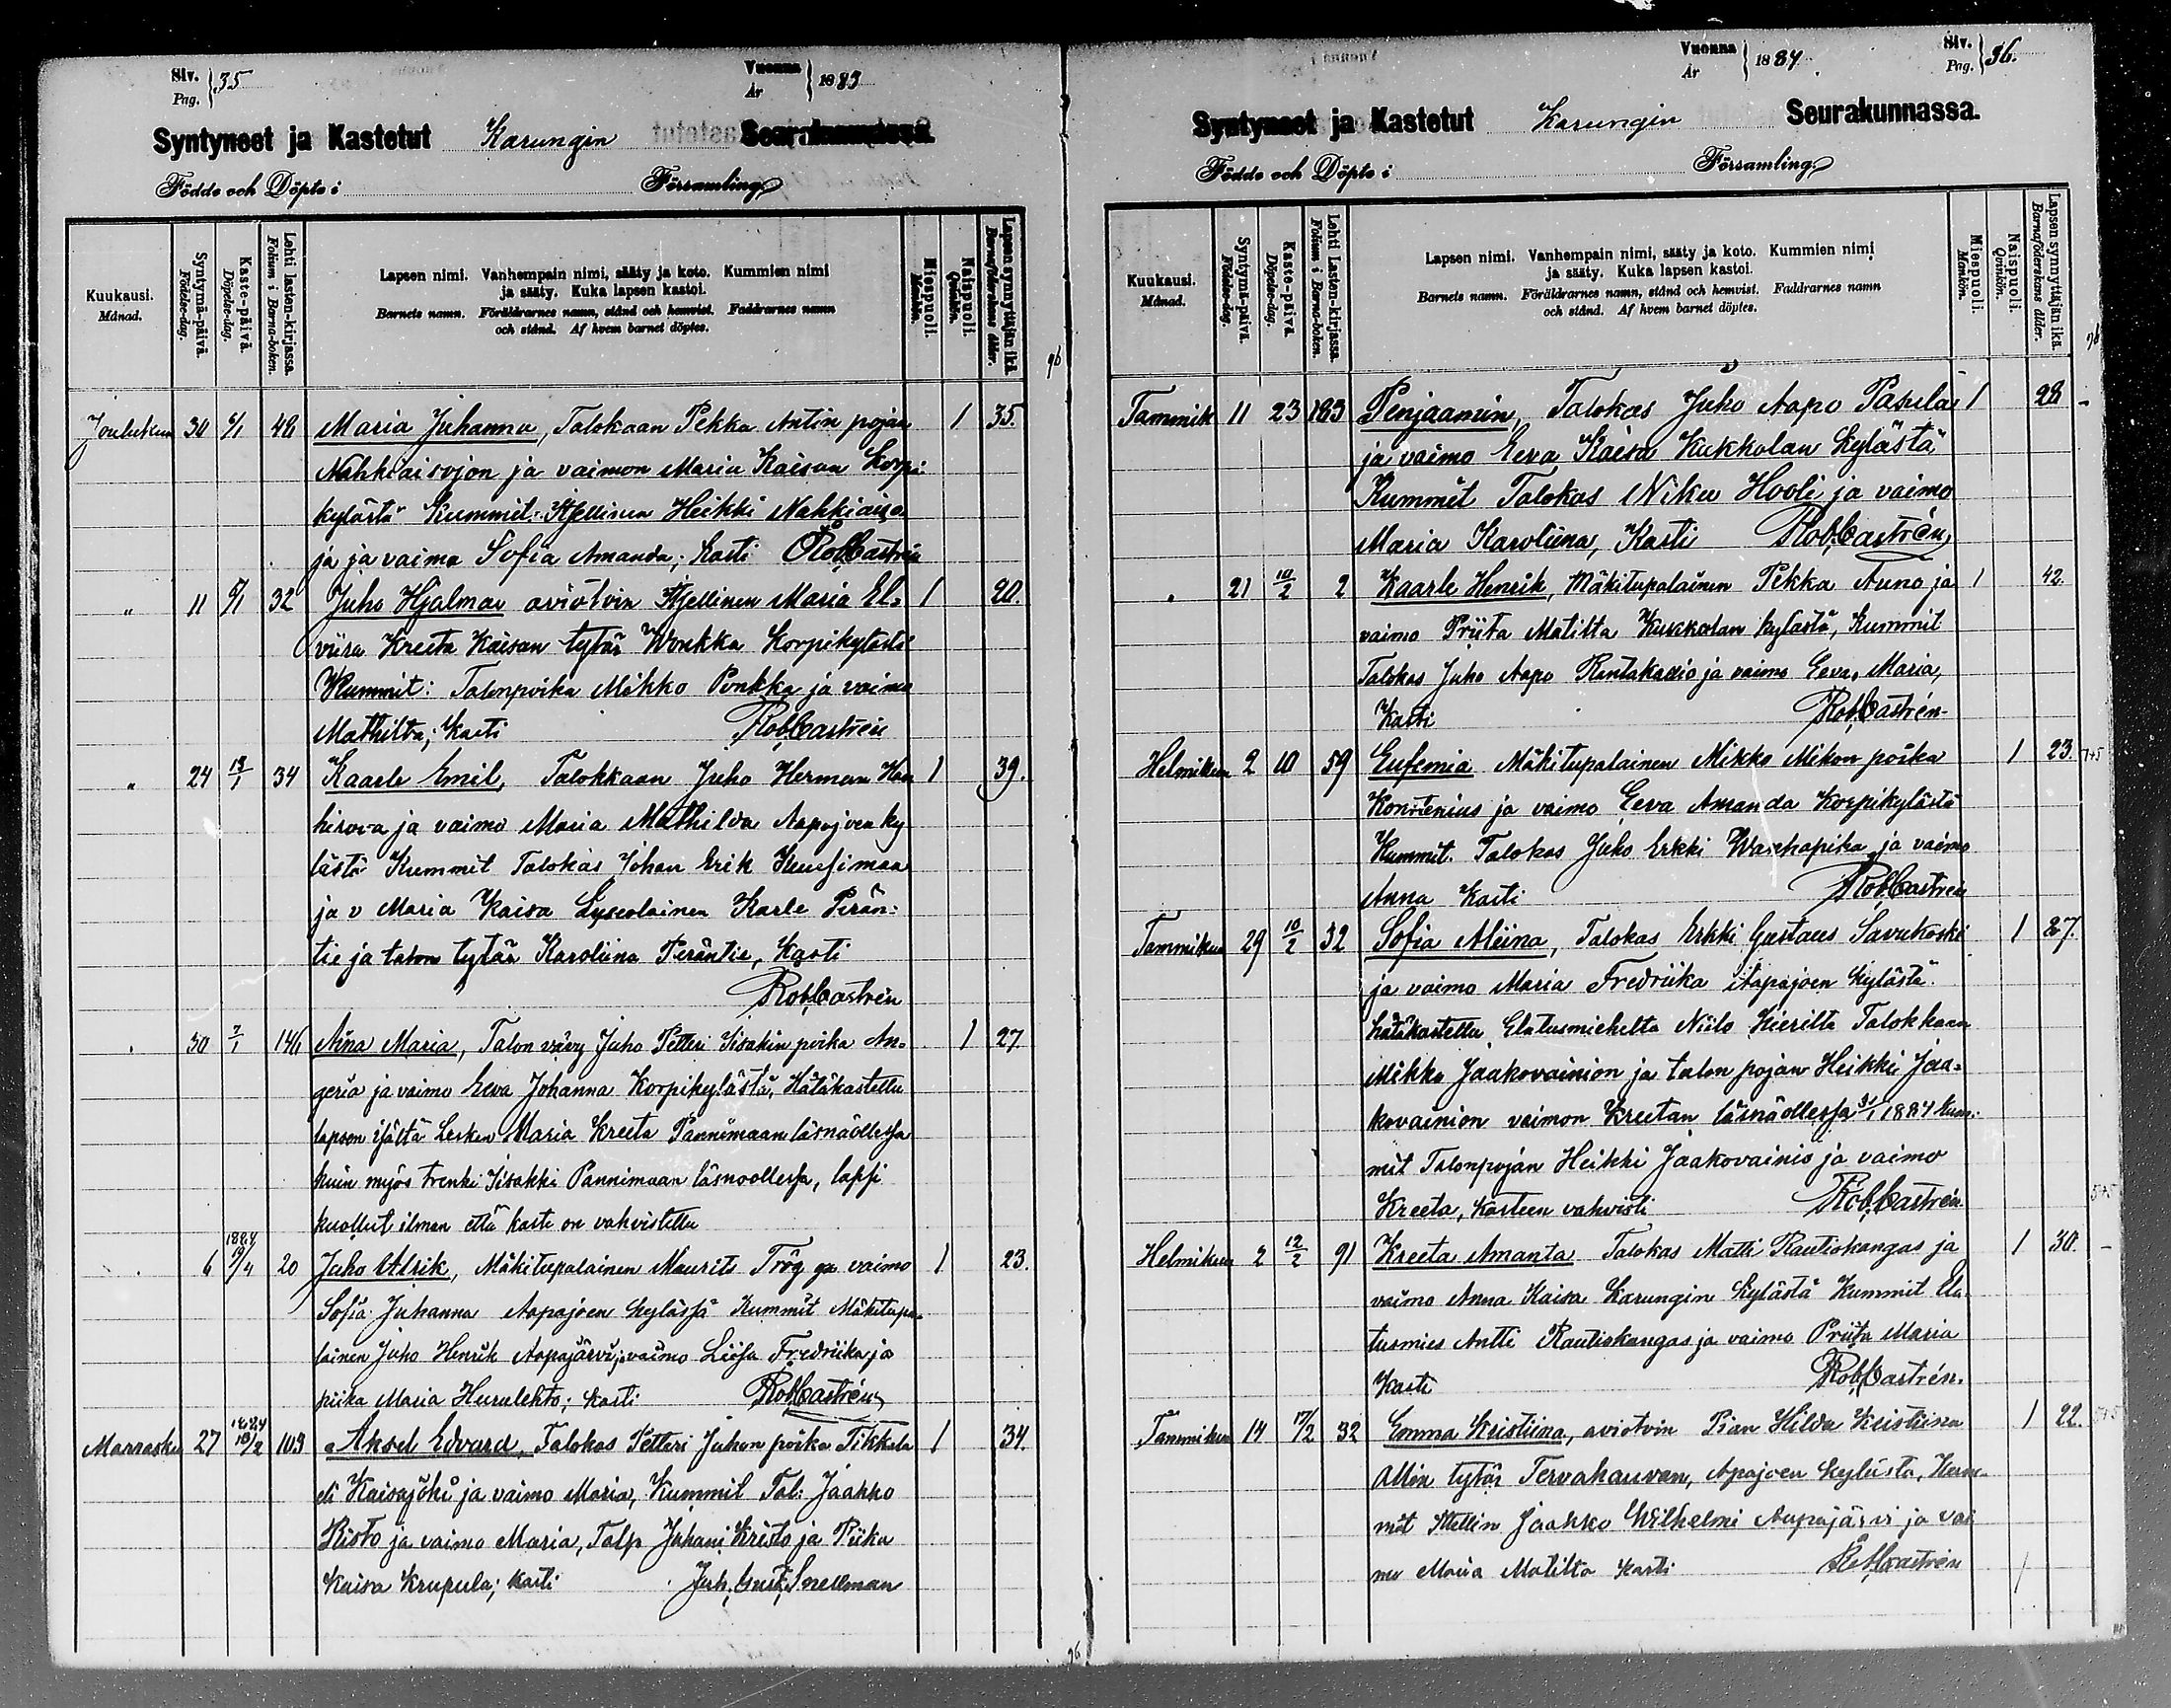 Siv. Pag. } 35
Vuonna År } 1883
Syntyneet ja Kastetut Karungin Seurakunnassa.
Födde och Döpte i Församling
Kuukausi. Månad.
Syntymä-päivä. Födelse-dag.
Kaste-päivä. Döpelse-dag.
Lehti lasten-kirjassa. Folium i Barna-boken.
Lapsen nimi. Vanhempain nimi, sääty ja koto. Kummien nimi
ja sääty. Kuka lapsen kastoi.
Barnets namn. Föräldrarnes namn, stånd och hemvist. Faddrarnes namn
och stånd. Af hvem barnet döptes.
Miespuoli. Mankön.
Naispuoli. Qvinkön.
Lapsen synnyttäjän ikä. Barnaföderskans ålder.
Joulukuu 30 6/1 48 Maria Juhanna, Talokaan Pekka Antin pojan 1 35.
Nahkiaisojon ja vaimon Maria Kaisan Korpi-
kylästä Kummit: Itsellinen Heikki Nahkiaiso
ja ja vaimo Sofia Amanda; Kasti Rob Castrén
" 11 6/1 32 Juho Hjalmar aviotvin Itsellinen Maria El= 1 20.
viira Kreeta Kaisan tytär Wonkka Korpikylästä
Kummit: Talonpoika Mikko Ponkka ja vaimo
Mathilta; Kasti Rob Castrén
" 24 13/1 34 Kaarle Emil, Talokkaan Juho Herman 1 39.
hirova ja vaimo Maria Mathilda Aapajoen ky
lästä Kummit Talokas Johan Erik Kuusimaa
ja v Maria Kaisa Kaarle Perän-
tie ja talon tytär Karoliina Peräntie, Kasti
Rob Castrén
" 30 7/1 146 Aina Maria, Talon vävy Juho Petteri Iisakin poika An= 1 27
geria ja vaimo Eeva Johanna Korpikylästä, Hätäkastettu
lapson isältä Lesken Maria Kreeta Pannimaan läsnäollessa
kuin myös trenki Iisakki Pannimaan läsnoollessa, lapsi
kuollut ilman että kaste on vahvistettu
1884
6 19/4 20 Juho Ulrik, Mäkitupalainen Maurits Trög ja vaimo 1 23.
Sofia Juhanna Aapajoen kylässä Kummit Mäkitupa-
lainen Juho Henrik Aapajärvi ja vaimo Liisa Fredriika ja
piika Maria Hurulehto; kasti Rob Castrén
1884
Marrasku 27 10/2 103 Aksel Edvard, Talokas Petteri Juhon poika Tikkala 1 34.
eli Kaisajoki ja vaimo Maria, Kummit Tal: Jaakko
Risto ja vaimo Maria, Talp Juhani Kristo ja Piika
Kaisa Krupula; kasti Joh. Gust. Snellman
Vuonna År } 1884
Siv. Pag. } 36.
Syntyneet ja Kastetut Karungin Seurakunnassa.
Födde och Döpte i Församling
Kuukausi. Månad.
Syntymä-päivä. Födelse-dag.
Kaste-päivä. Döpelse-dag.
Lehti Lasten-kirjassa. Folium i Barna-boken.
Lapsen nimi. Vanhempain nimi, sääty ja koto. Kummien nimi
ja sääty. Kuka lapsen kastoi.
Barnets namn. Föräldrarnes namn, stånd och hemvist. Faddrarnes namn
och stånd. Af hvem barnet döptes.
Miespuoli. Mankön.
Naispuoli. Qvinkön.
Lapsen synnyttäjän ikä. Barnaföderskans ålder.
Tammik 11 23 183 Penjaamin, Talokas Juho Aapo Pasula 1 28
ja vaimo Eeva Kaisa Kukkolan kylästä
Kummit Talokas Niku Hooli ja vaimo
Maria Karoliina, Kasti Rob Castrén
" 21 10/2 2 Kaarle Henrik, Mäkitupalainen Pekka Auno ja 1 42.
vaimo Priita Matilta Kukkolan kylästä, Kummit
Talokas Juho Aapo Rantakallio ja vaimo Eeva Maria,
Kasti Rob Castrén
Helmikuu 2 10 59 Eufemia Mäkitupalainen Mikko Mikon poika 1 23.
Kontenius ja vaimo Eeva Amanda Korpikylästä
Kummit. Talokas Juho Erkki Wanhapiha ja vaimo
Anna Kasti Rob Castrén
Tammikuu 29 10/2 32 Sofia Aliina, Talokas Erkki Gustaus Savukoski 1 27.
ja vaimo Maria Fredriika Aapajoen kylästä
hätäkastettu Elatusmieheltä Niilo Kieriltä Talokkaan
Mikko Jaakovainion ja talon pojan Heikki Jaa=
kovainion vaimon Kreetan läsnäollessa 31/1 1884 Kum-
mit Talonpojan Heikki Jaakovainio ja vaimo
Kreeta, Kasteen vahvisti Rob Castrén
Helmikuu 2 12/2 91 Kreeta Amanta Talokas Matti Rautiokangas ja 1 30.
vaimo Anna Kaisa Karungin kylästä Kummit Ela
tusmies Antti Rautiokangas ja vaimo Priita Maria
Kasti Rob Castrén.
Tammikuu 14 17/2 32 Emma Kristiina, aviotvin Pian Hilda Kristiina 1 22.
Allin tytär Tervahauvan, Apajoen kylästä, Kum-
mit Itsellin Jaakko Wilhelmi Aapajärvi ja vai
mo Maria Matilta Kasti Rob Castrén